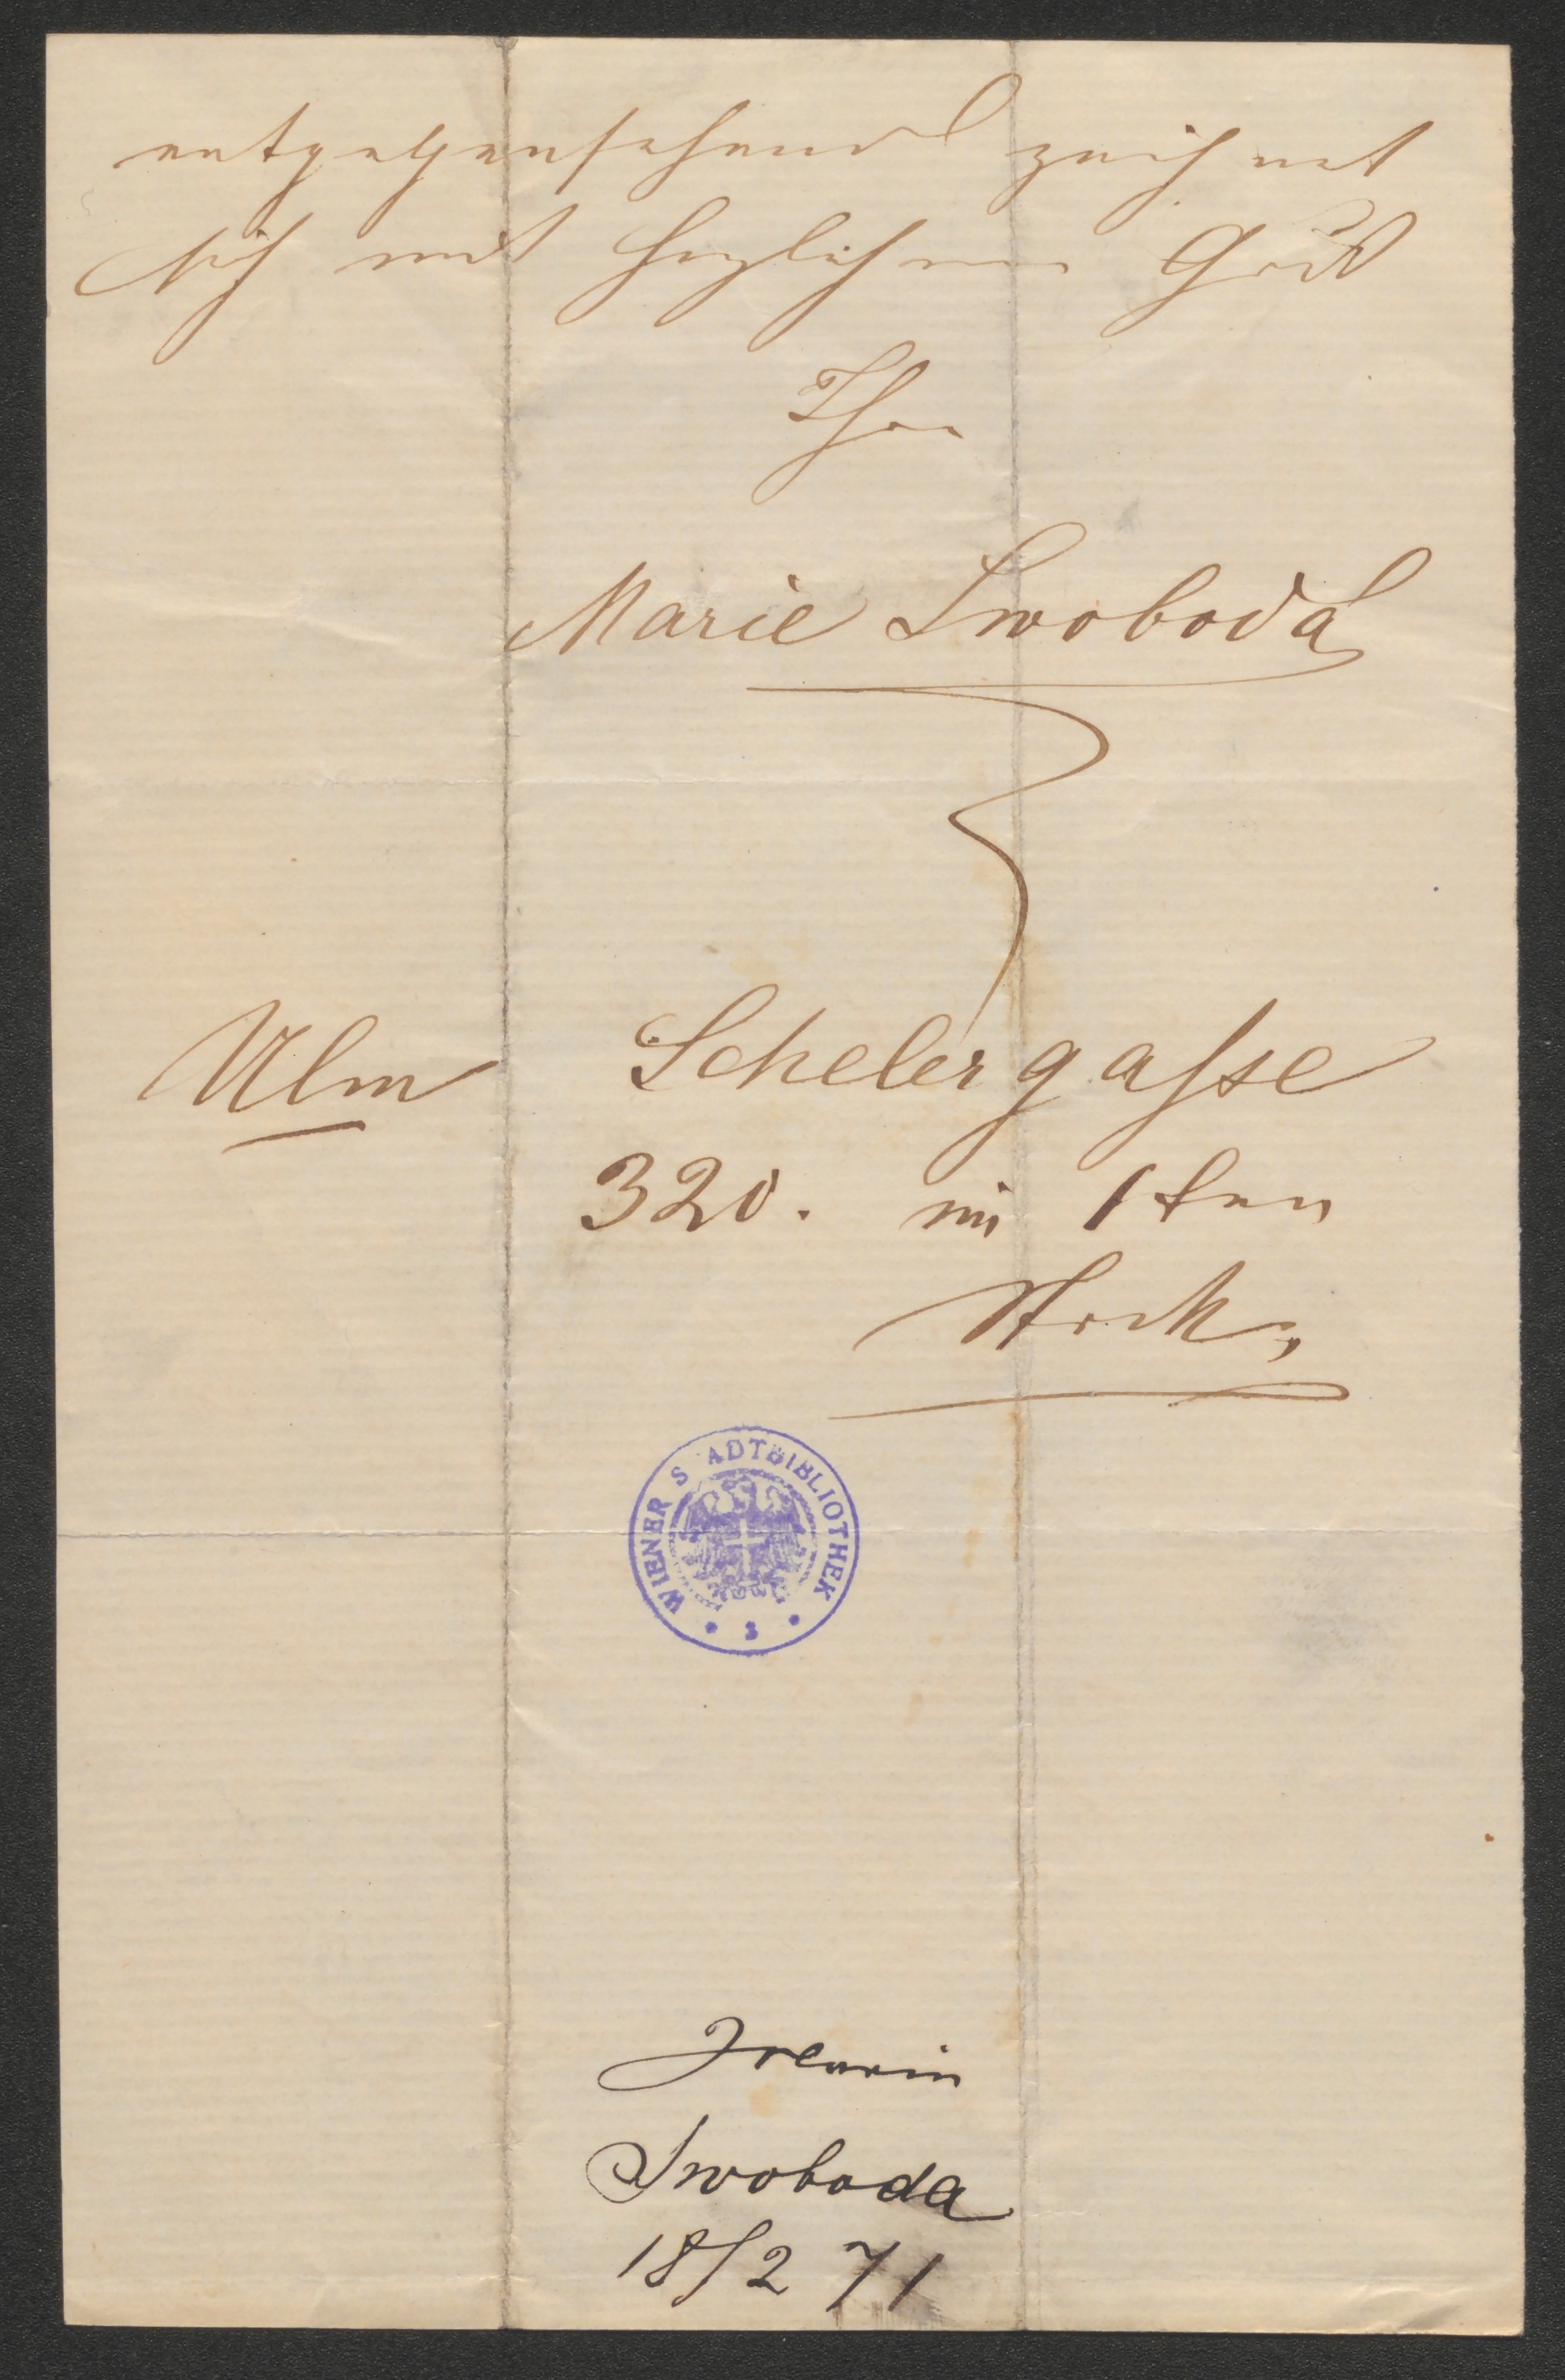 entgegensehend zeichnet
sich mit herzlichem Gruß
Ihre
Marie Swoboda
Ulm Schelergasse
320. im 1ten
Stock,
WIENER STADTBIBLIOTHEK
Swoboda
18/2 71